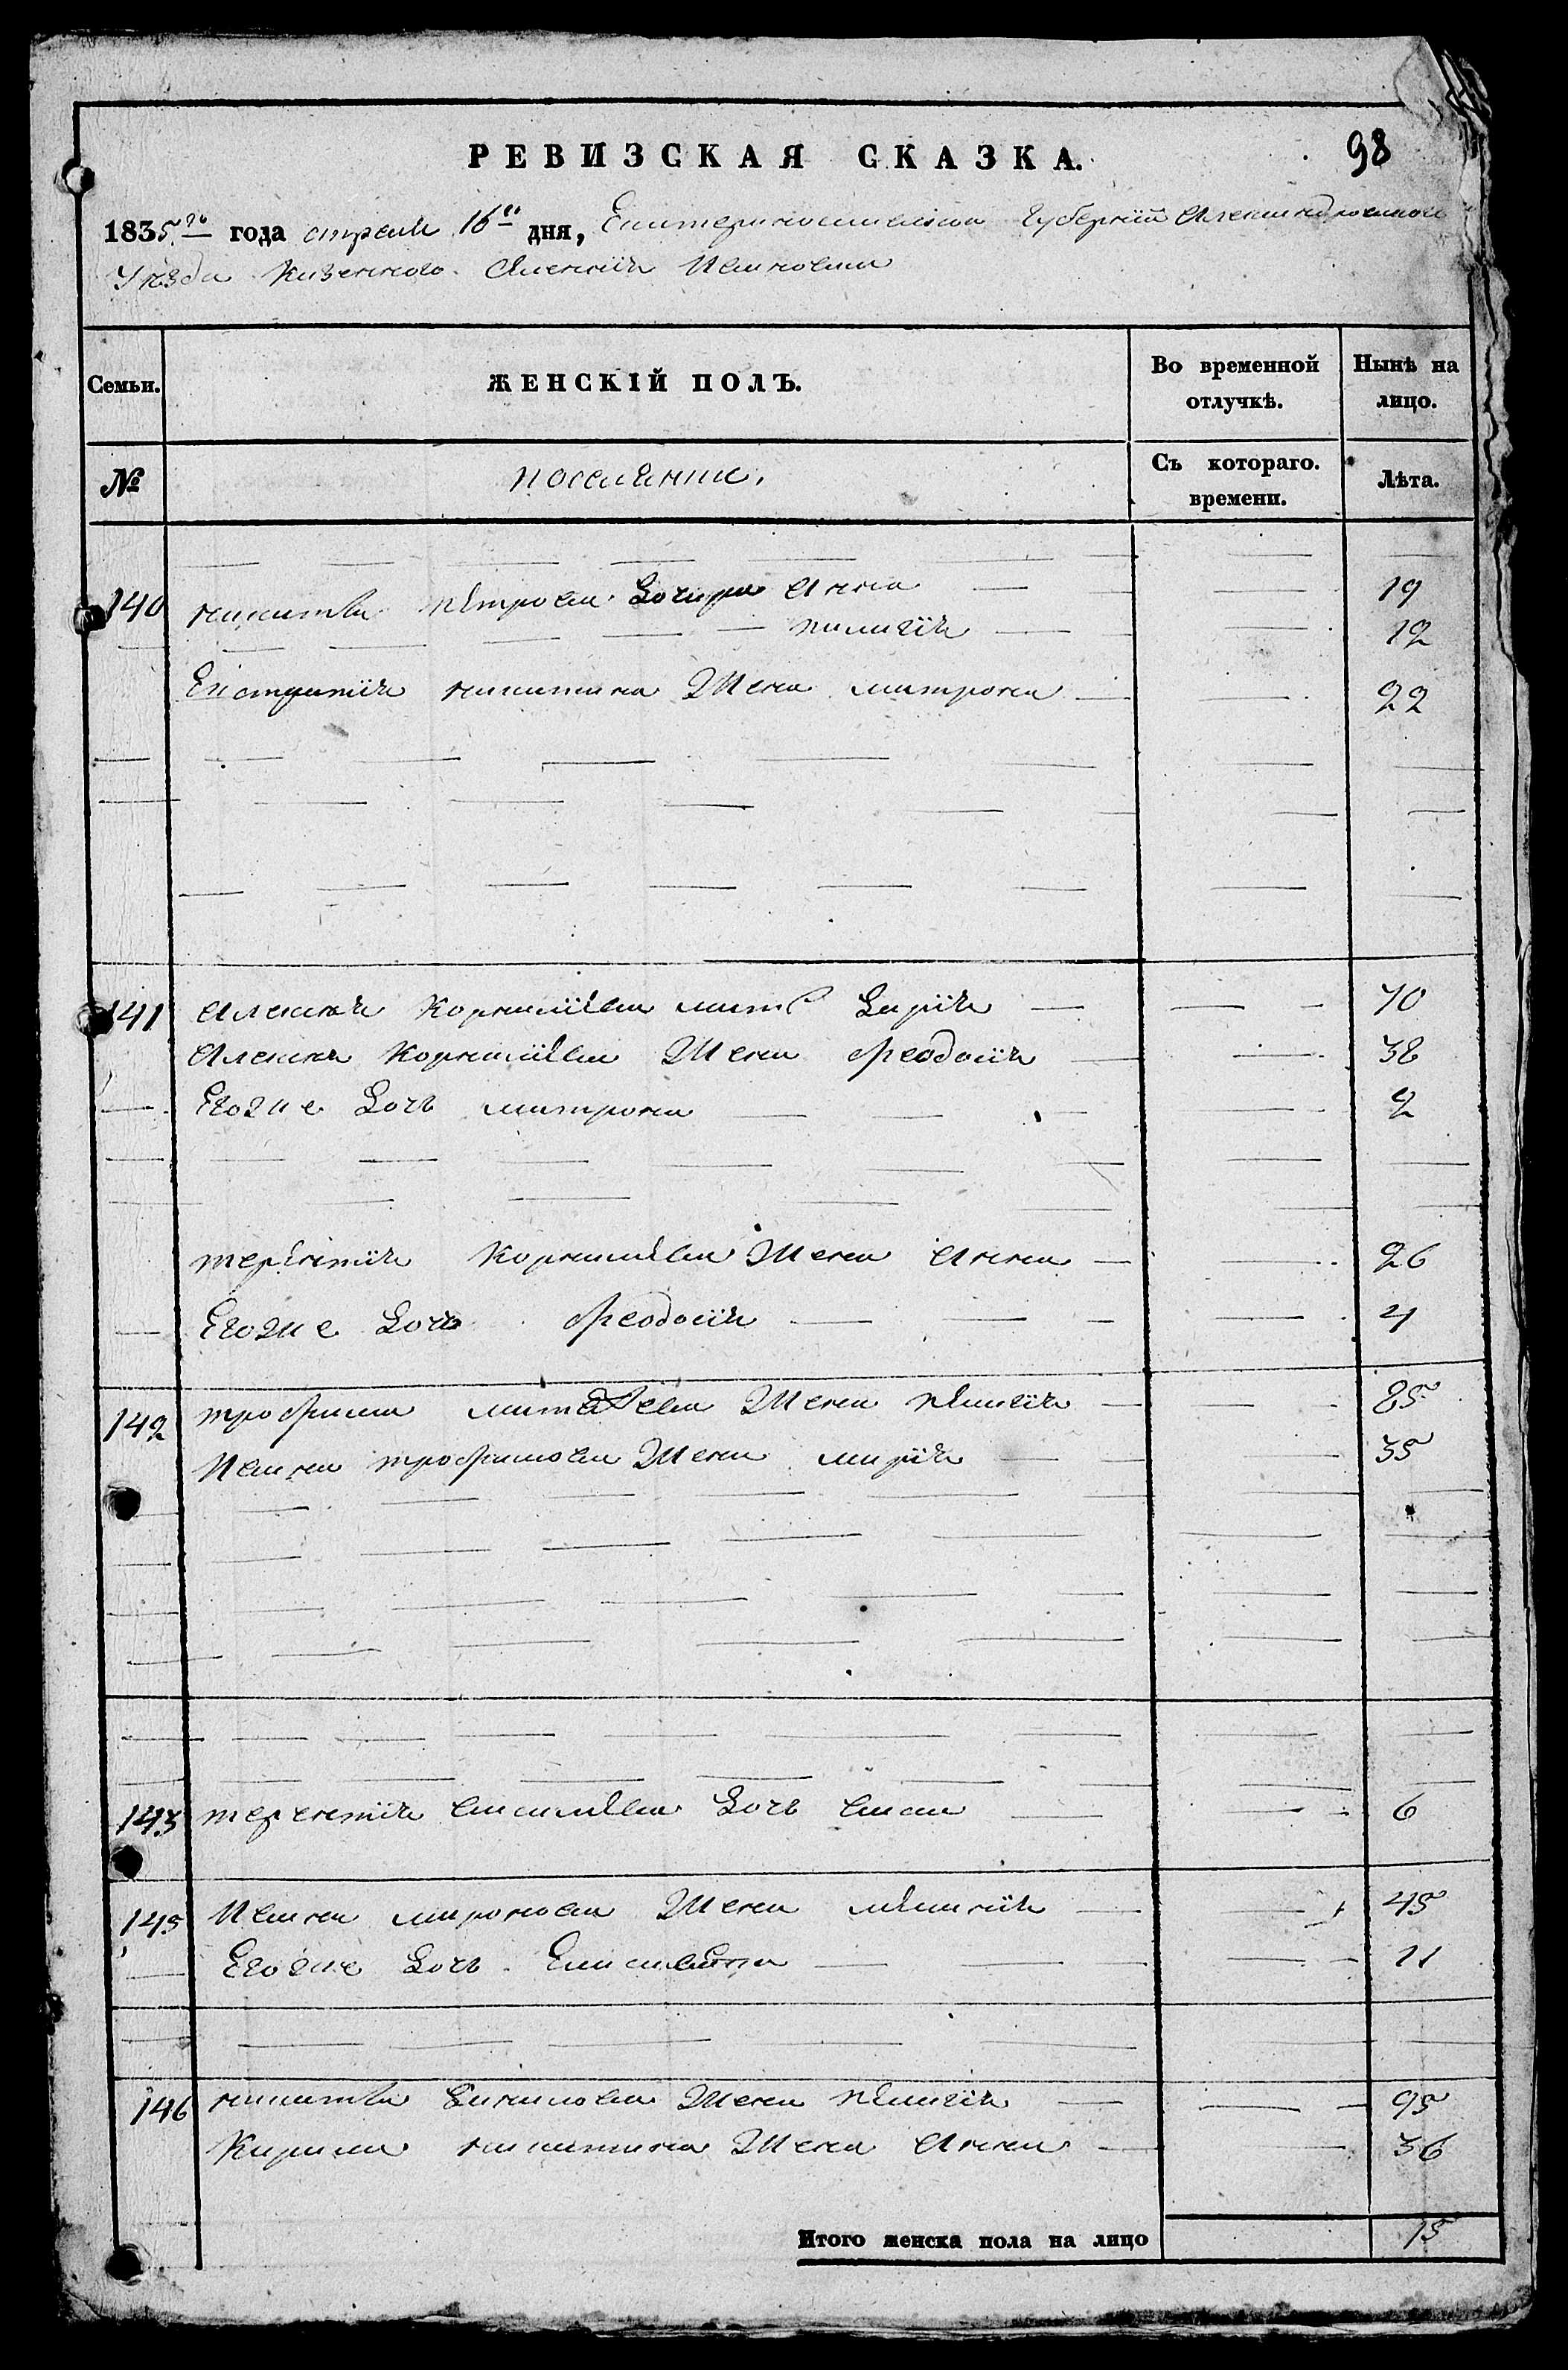 98
РЕВИЗСКАЯ СКАЗКА.
1835го года апреля 16го дня, Екатеринославской Губернии Александровского
Уезда Казенного Селения Ивановки
Семьи. ЖЕНСКІЙ ПОЛЪ. Во временной отлучкѣ. Нынѣ на лицо.
№ поселянки. Съ котораго. времени. Лѣта.
140 никиты петрова дочери анна 19
пилагія 12
Евстратія никитина Жена матрона 22
141 алексея корнилиева мать Дарія 70
алексея корнилиева Жена феодосія 38
Егоже Дочь матрона 2
терентія корнилиева Жена анна 26
Егоже Дочь феодосія 4
142 трофима матвеева Жена пелагія 85
Ивана трофимова Жена марія 35
143 терентія василиева Дочь васа 6
145 Ивана миронова Жена меланія 45
Егоже Дочь Елисавета 11
146 никиты Жена пелагія 95
Кирила никитина Жена анна 36
Итого женска пола на лицо 15